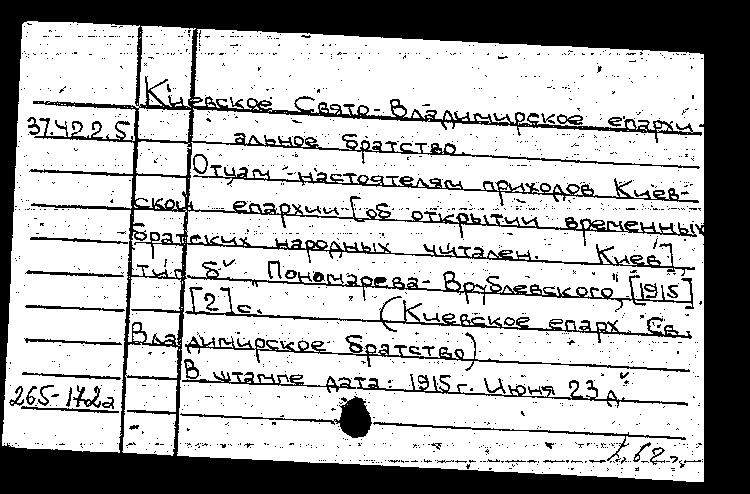 Киевское Свято-Владимирское епархи-
37.42.2.5
альное братство.
Отцам-настоятелям приходов Киев-
ской епархии [об открытии временных
братских народных читален. Киев],
тип. б "Пономарева-Врублевского", [1915].
[2] с. (Киевское епарх. Св.
Владимирское братство)
В штампе дата: 1915 г. Июня 23 д.
265-172а